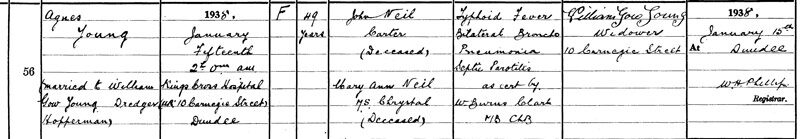 56
Agnes
Young
(married to William
Gow Young Dredger
Hopperman)
1938,
January
Fifteenth
2h 0m am
Kings Cross Hospital
(UR 10 Carnegie Street)
Dundee
F
49
Years
John Neil
Carter
(Deceased)
Mary Ann Neil
M.S. Chrystal
(Deceased)
Typhoid Fever
Bilateral Broncho
Pneumonia
Septic Parotitis
as cert by
W Burns Clark
MB ChB
William Gow Young
Widower
10 Carnegie Street
1938,
January 15th
At Dundee
W H Phillip
Registrar.